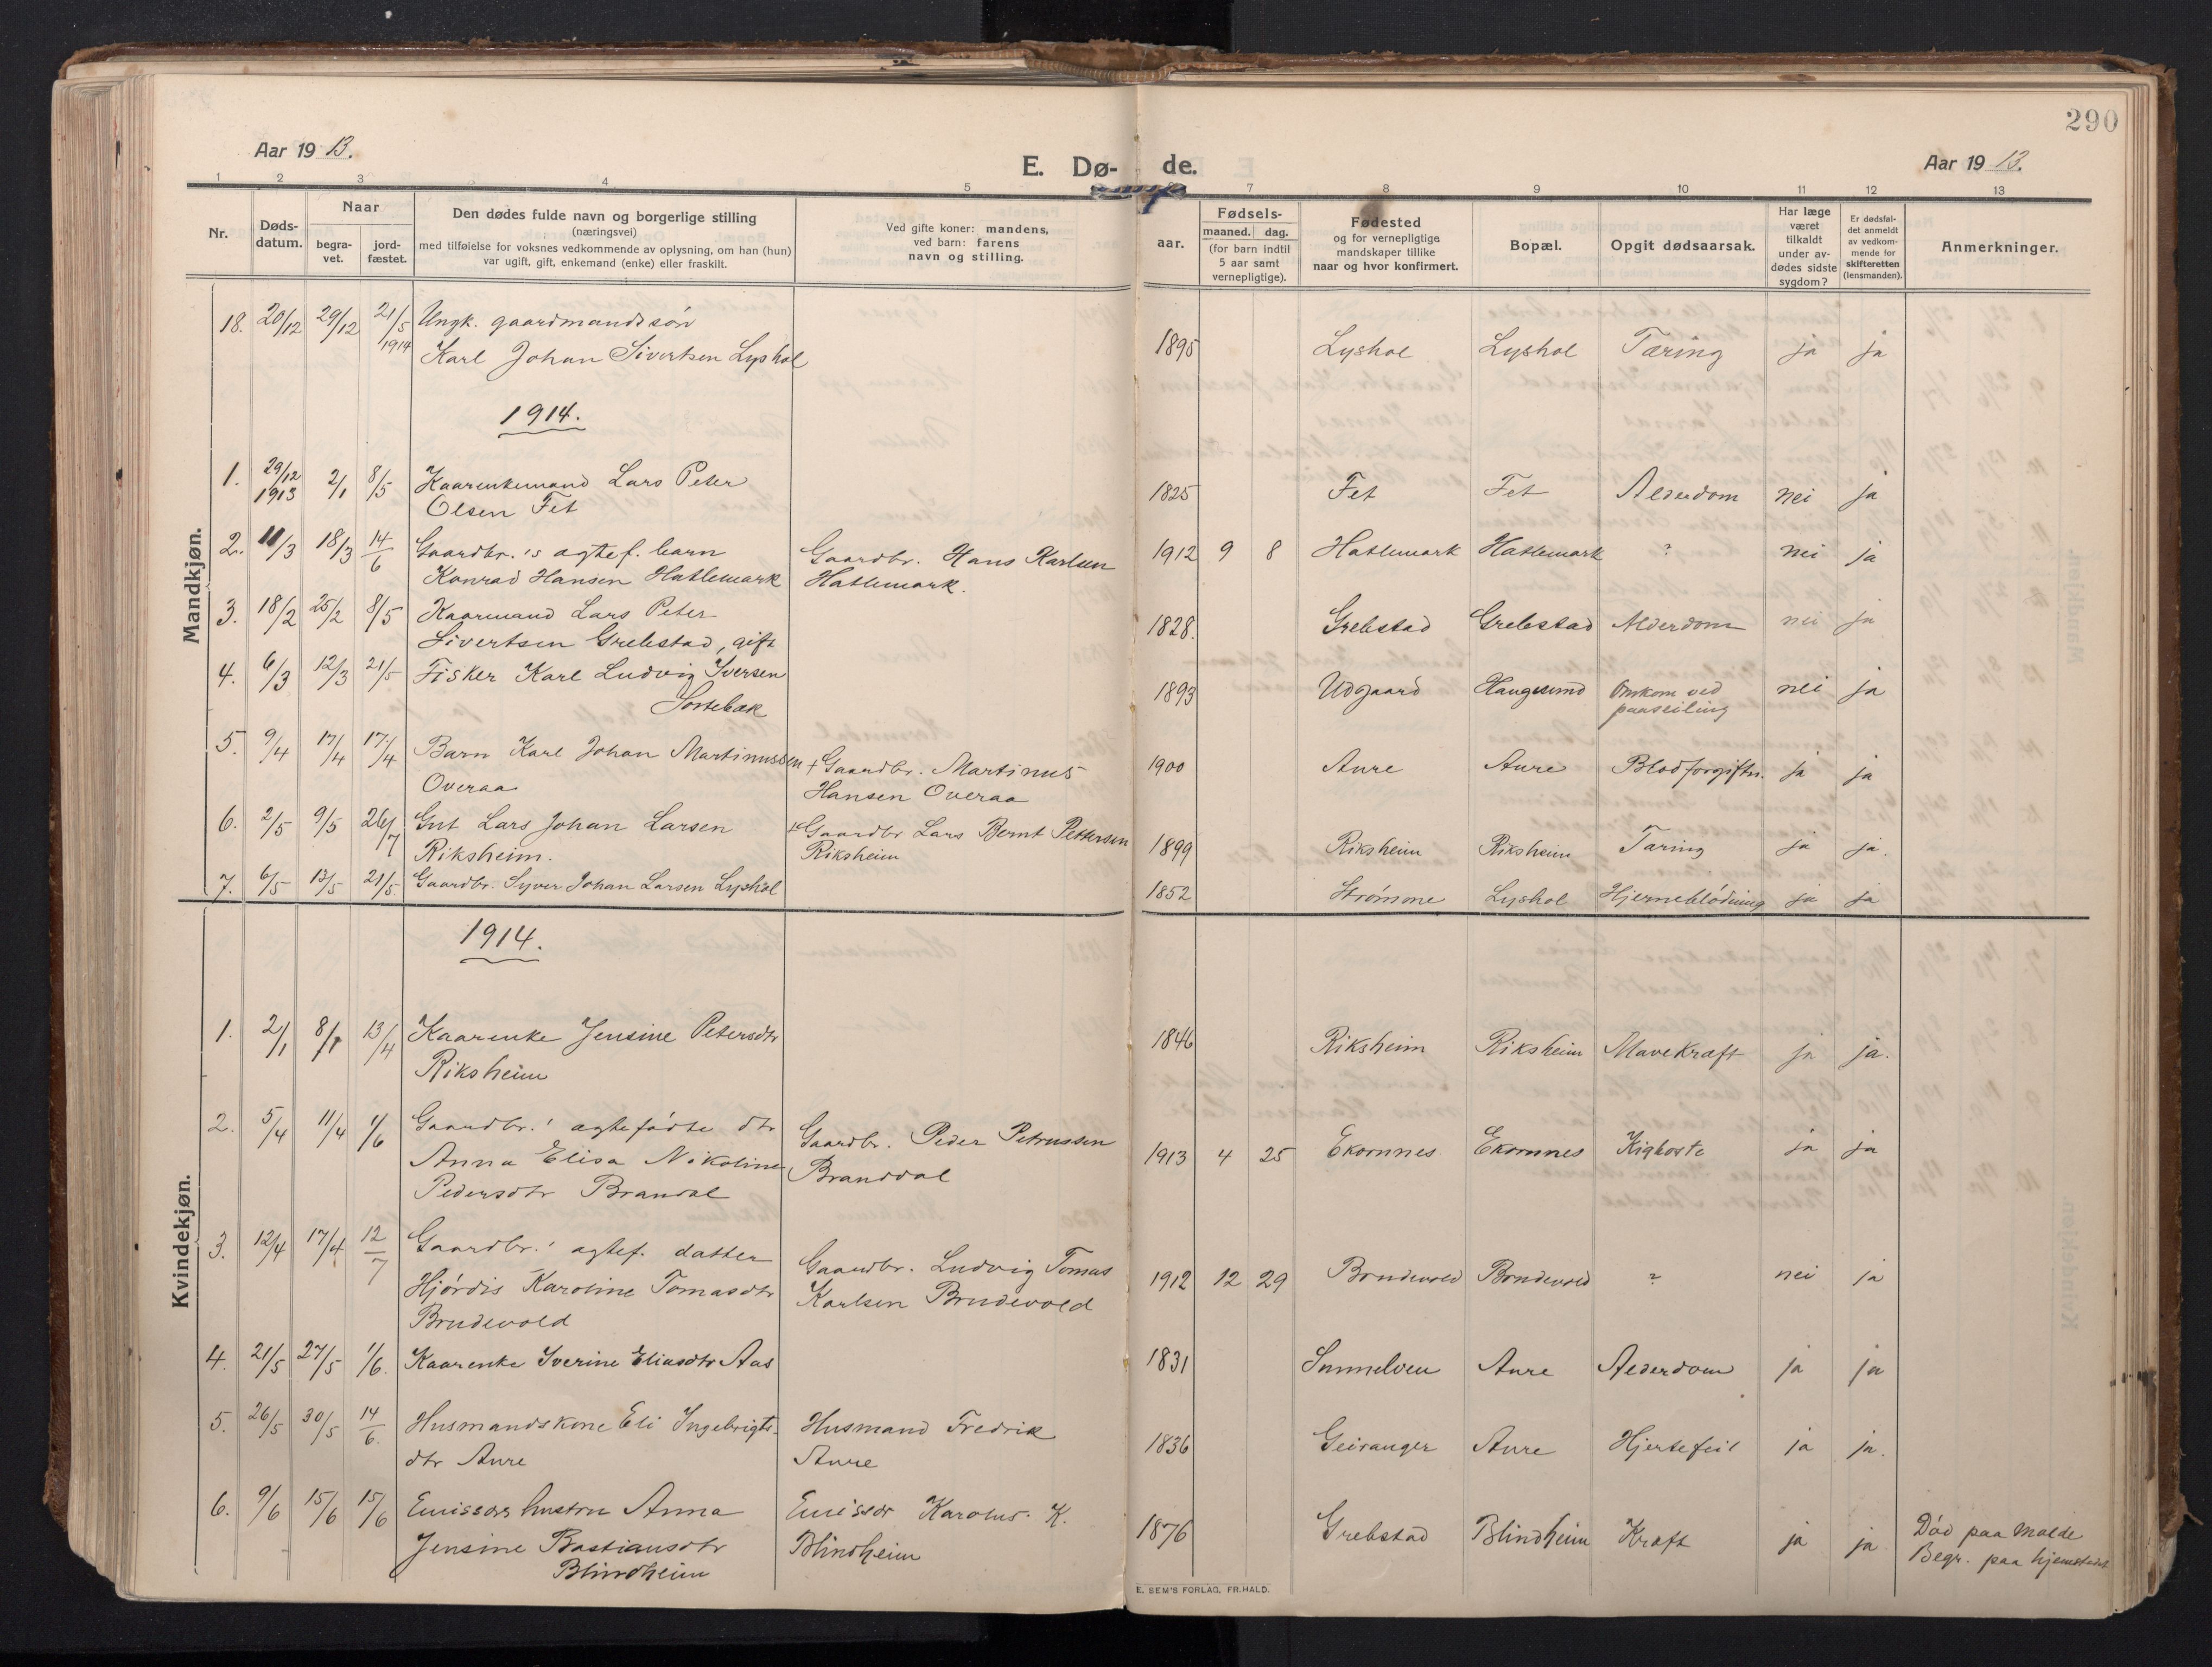 290
Aar 1913.
E. Dø-
de.
Aar 1913.
1 2 3 4 5 7 8 9 10 11 12 13
Nr.
Døds-
datum.
Naar
begra-
vet.
jord-
fæstet.
Den dødes fulde navn og borgerlige stilling
(næringsvei)
med tilføielse for voksnes vedkommende av oplysning, om han (hun)
var ugift, gift, enkemand (enke) eller fraskilt.
Ved gifte koner: mandens,
ved barn: farens
navn og stilling.
aar.
Fødsels-
maaned. dag.
(for barn indtil
5 aar samt
vernepligtige).
Fødested
og for vernepligtige
mandskaper tillike
naar og hvor konfirmert.
Bopæl.
Opgit dødsaarsak.
Har læge
været
tilkaldt
under av-
dødes sidste
sygdom?
Er dødsfal-
det anmeldt
av vedkom-
mende for
skifteretten
(lensmanden).
Anmerkninger.
Mandkjøn.
18. 20/12 29/12 21/5 1914 Ungk. gaardmandssøn
Karl Johan Sivertsen Lyshol 1895 Lyshol Lyshol Tæring ja ja
1914.
1. 29/12 1913 2/1 8/5 Kaarenkemand Lars Peter
Olsen Fet 1825 Fet Fet Alderdom nei ja
2. 11/3 18/3 14/6 Gaardbr.'s ægtef. barn
Konrad Hansen Hatlemark
Gaardbr. Hans Karlsen
Hatlemark. 1912 9 8 Hatlemark Hatlemark ? nei ja
3. 18/2 25/2 8/5 Kaarmand Lars Peter
Sivertsen Grebstad, gift 1828. Grebstad Grebstad Alderdom nei ja
4. 6/3 12/3 21/5 Fisker Karl Ludvig Iversen
Sortebæk 1893 Udgaard Haugesund Omkom ved
paaseiling nei ja
5. 9/4 17/4 17/4 Barn Karl Johan Martinussen
Overaa
+ Gaardbr. Martinus
Hansen Overaa 1900 Aure Aure Blodforgiftn. ja ja
6. 2/5 9/5 26/7 Gut Lars Johan Larsen
Riksheim.
Gaardbr Lars Bernt Pettersen
Riksheim 1899 Riksheim Riksheim Tæring ja ja.
7. 6/5 13/5 21/5 Gaardbr. Syver Johan Larsen Lyshol 1852 Strømme Lyshol Hjerneblödning ja ja
Kvindekjøn.
1914.
1. 2/1 8/1 13/4 Kaarenke Jensine Petersdtr
Riksheim 1846 Riksheim Riksheim Mavekræft ja ja.
2. 5/4 11/4 1/6 Gaardbr.' ægtefödte dtr
Anna Elisa Nikoline
Pedersdtr Brandal
Gaardbr. Peder Petrussen
Branddal 1913 4 25 Ekornnes Ekornnes Kighoste ja ja
3. 12/4 17/4 12/7 Gaardbr.' ægtef. datter
Hjördis Karoline Tomasdtr
Brudevold
Gaardbr. Ludvig Tomas
Karlsen Brudevold 1912 12 29 Brudevold Brudevold ? nei ja
4. 21/5 27/5 1/6. Kaarenke Iverine Eliasdtr Aas 1831 Sunnelven Aure Alderdom ja ja
5. 26/5 30/5 14/6. Husmandskone Eli Ingebrigts-
dtr Aure
Husmand Fredrik
Aure 1836 Geiranger Aure Hjertefeil ja ja.
6. 9/6 15/6 15/6 Emissærs hustru Anna
Jensine Bastiansdtr
Blindheim
Emissær Karolus K.
Blindheim 1876 Grebstad Blindheim Kræft ja ja
Död paa Molde
Begr. paa hjemstedet
E. SEM'S FORLAG, FR.HALD.